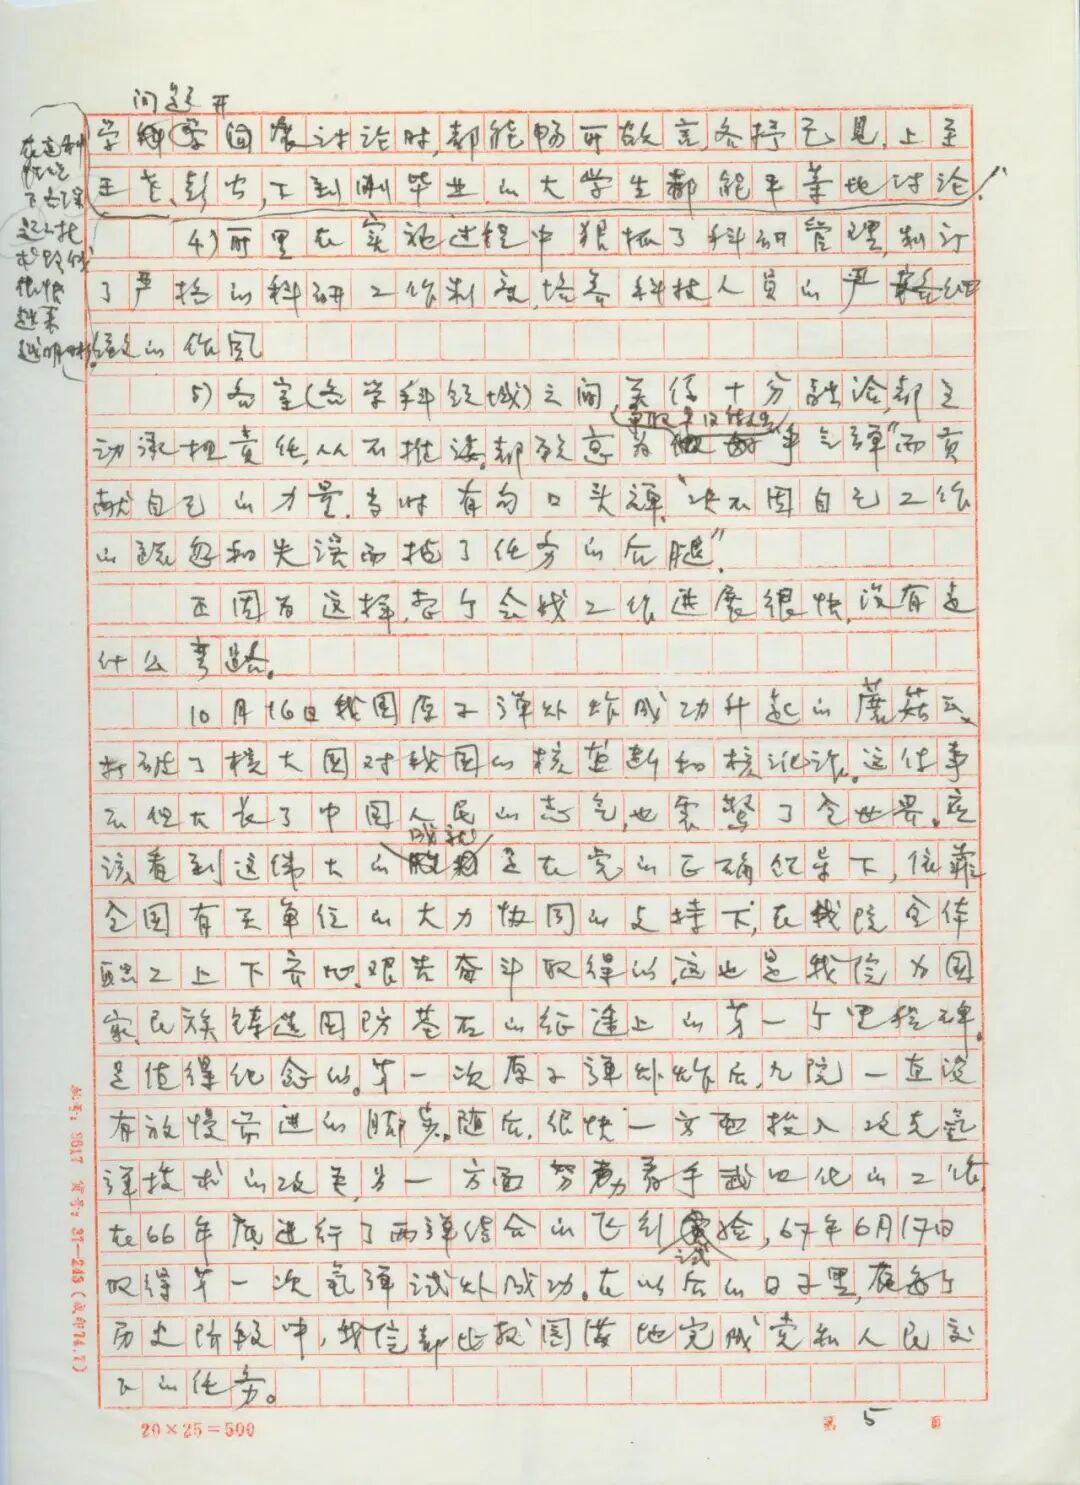 问题开
学科学间展讨论时,都能畅所欲言,各抒已见,上至
王老、彭公,下到刚毕业的大学生都能平等地讨论.
在这制
下各课
题的技
术路线
很快
越来
越明晰.
4)所里在实施过程中狠抓了科研管理,制订
了严格的科研工作制度,培养科技人员的严格细
致的作风
5)各室(各学科领域)之间关系十分融洽,都主
动承担责任,从不推诿,都愿意为"争气弹"而贡
献自己的力量,当时有句口头禅,"决不因自己工作
的疏忽和失误而拖了任务的后腿".
正因为这样,整个会战工作进展很快,没有走
什么弯路。
10月16日我国原子弹爆炸成功升起的蘑菇云,
打破了核大国对我国的核垄断和核讹诈。这件事
不但大长了中国人民的志气,也震惊了全世界,应
成就
该看到这伟大的是在党的正确领导下,依靠
全国有关单位的大力协同的支持下,在我院全体
职工上下齐心,艰苦奋斗取得的,这也是我院为国
家、民族铸造国防基石的征途上的第一个里程碑,
是值得纪念的。第一次原子弹爆炸后,九院一直没
有放慢前进的脚步。随后,很快一方面投入攻克氢
弹技术的攻关,另一方面努力着手武器化的工作,
在66年底进行了两弹结合的飞行试验,67年6月17日
取得第一次氢弹试爆成功.在以后的日子里,在每个
历史阶段中,我院都比较圆满地完成党和人民交
下的任务。
20×25=500
第5页